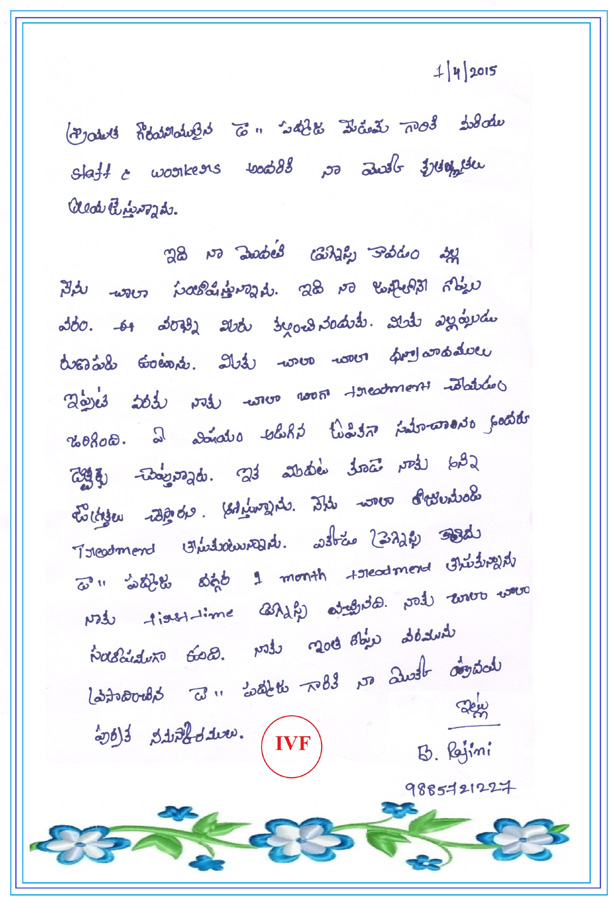 1/4/2015
శ్రీయుత గౌరవనీయులైన డా" పద్మజ మేడమ్ గారికి మరియు
staff & workers అందరికి నా యొక్క కృతజ్ఞతలు
తెలియచేస్తున్నాను.
ఇది నా మొదటి ప్రెగ్నెన్సి కావడం వల్ల
నేను చాలా సంతోషిస్తున్నాను. ఇది నా గొప్ప
వరం. ఈ వరాన్ని మీరు కల్గించినందుకు. మీకు ఎల్లప్పుడు
రుణపడి ఉంటాను. మీకు చాలా చాలా ధన్యవాదములు
ఇప్పటి వరకు నాకు చాలా బాగా treatment చేయడం
జరిగింది. ఏ విషయం అడిగిన ఓపికగా సమాచారం అందరు
చెప్తున్నారు. ఇక ముందు కూడా నాకు అన్ని
జాగ్రత్తలు చేస్తారని. నేను చాలా రోజులనుండి
Treatmend తీసుకుంటున్నాను. ఎక్కడా ప్రెగ్నెన్సి కాలేదు
డా" పద్మజ దగ్గర 1 month treatmend తీసుకున్నాను
నాకు first time ప్రెగ్నెన్సి వచ్చినది. నాకు చాలా చాలా
సంతోషముగా ఉంది. నాకు ఇంత గొప్ప వరమును
ప్రసాదించిన డా" పద్మజ గారికి నా యొక్క హృదయ
పూర్వక నమస్కారములు.
ఇట్లు
IVF
B. Rajini
9885721227